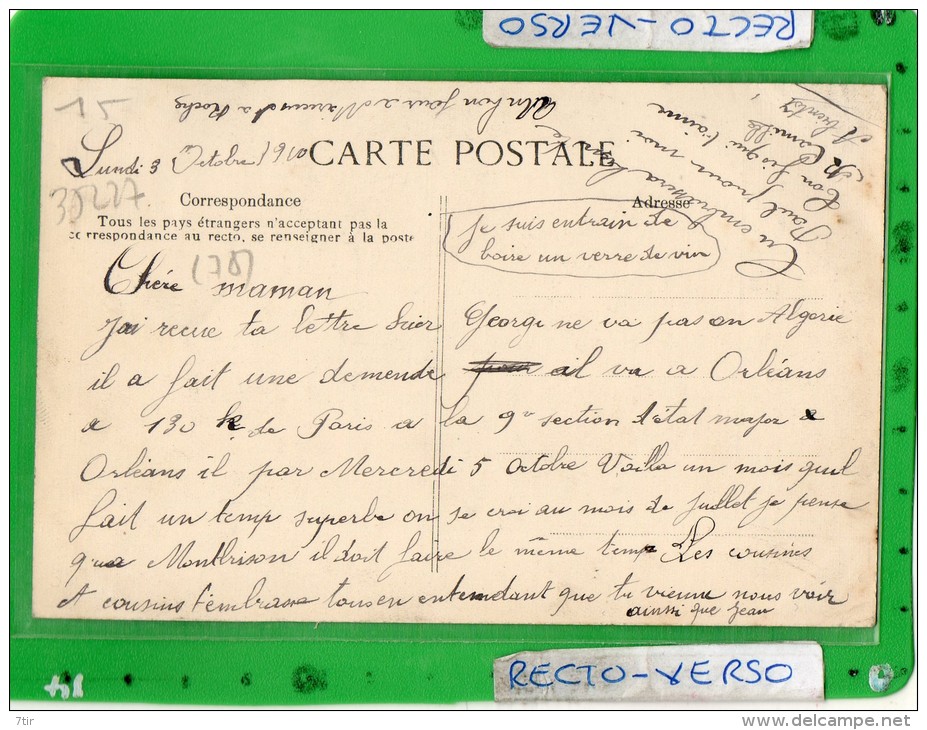 RECTO-VERSO
15
un bon jour a Marius et a Roche
Lundi 3 Octobre 1910
CARTE POSTALE
35227.
Correspondance
Tous les pays étrangers n'acceptant pas la
correspondance au recto, se renseigner à la poste
Adresse
je suis entrain de
boire un verre de vin
(78)
Chére maman
J'ai recue ta lettre hier George ne va pas en Algerie
il a fait une demende il va a Orléans
a 130 k. de Paris a la 9e section d'état major a
Orléans il par Mercredi 5 octobre Voilla un mois quil
fait un temp superbe on se croi au mois de Juillet je pense
qua Montbrison il doit faire le même temp Les cousines
et cousins t'embrasse tous en entendant que tu vienne nous voir
ainsi que Jean
Tu embrassera bien
Paul pour moi
Ton fis qui t'aime
Camille
A bientot
RECTO-VERSO
7tir
www.delcampe.net